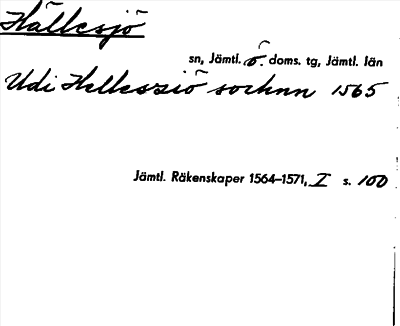 Hällesjö
sn, Jämtl. ö. doms. tg, Jämtl. län
Udi Hellesziö sochnn 1565
Jämtl. Räkenskaper 1564–1571, I s. 100